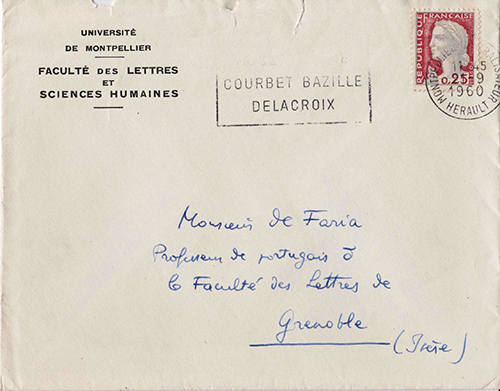 UNIVERSITÉ
DE MONTPELLIER
FACULTÉ DES LETTRES
ET
SCIENCES HUMAINES
COURBET BAZILLE
DELACROIX
REPUBLIQUE FRANÇAISE
0,25
45
9
1960
HERAULT
Monsieur de Faria
Professeur de portugais à
la Faculté des Lettres de
Grenoble
(Isère)